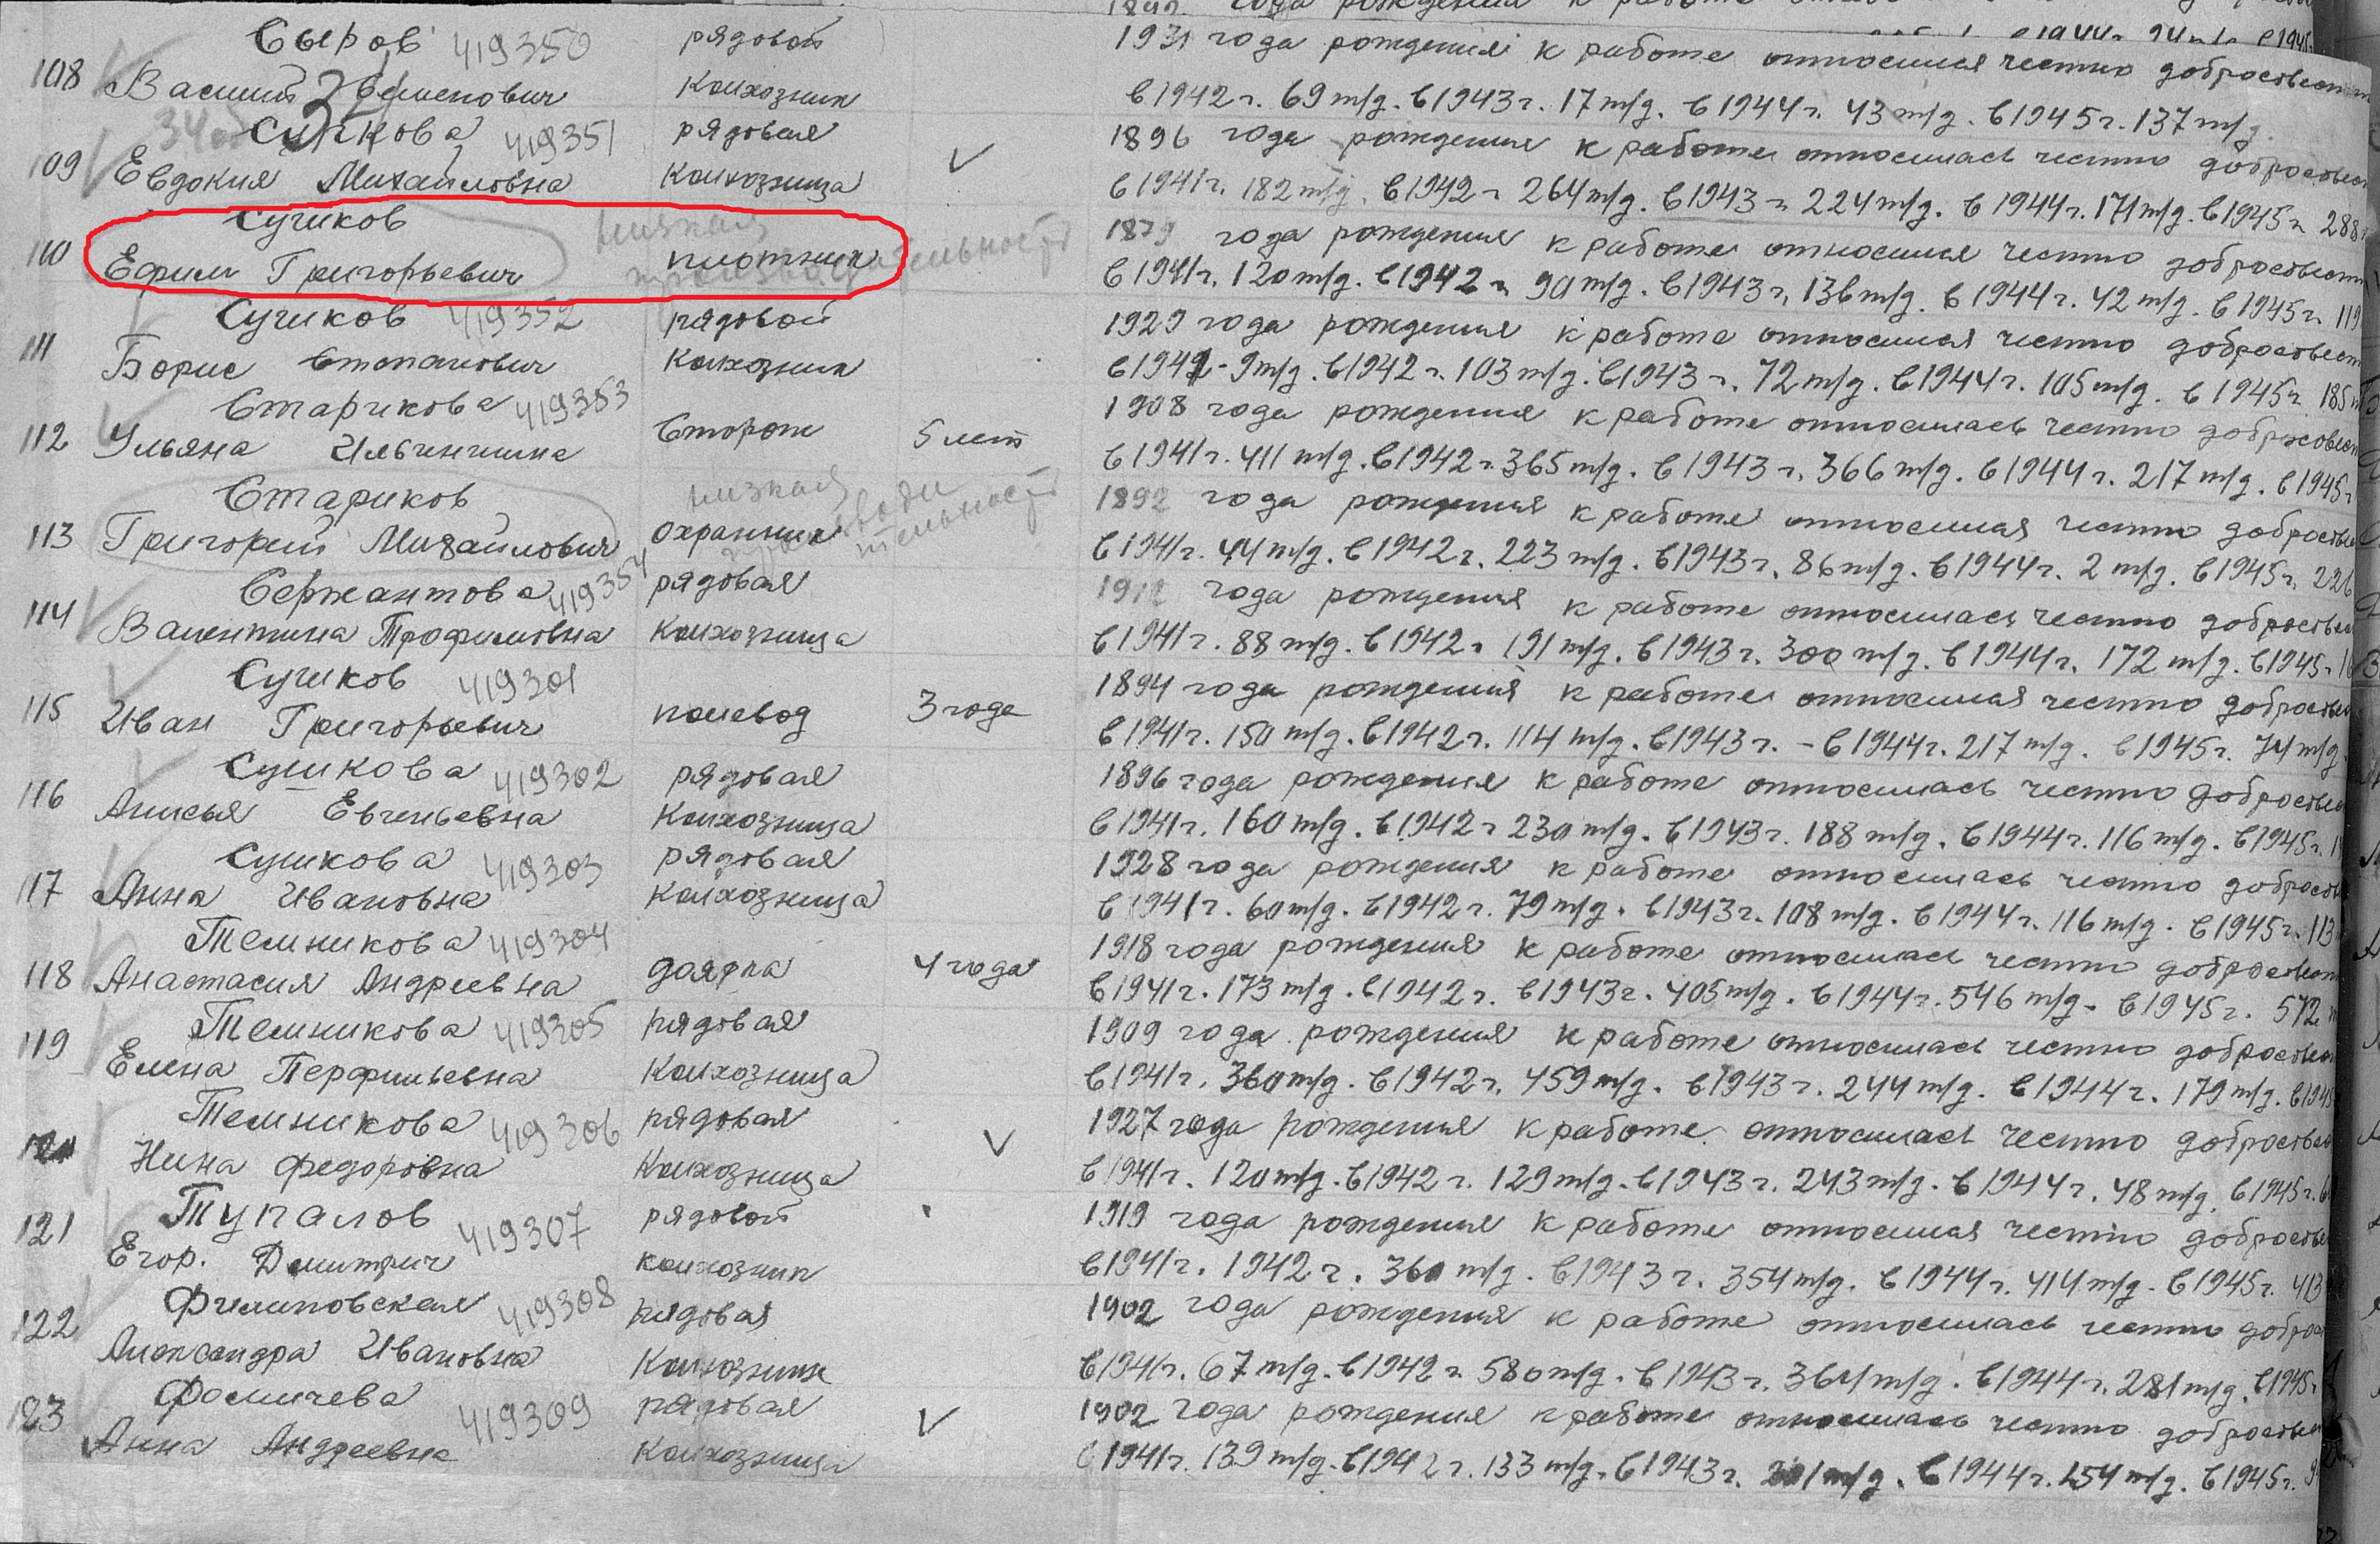 Сыров 419350 рядовой 1931 года рождения к работе относился честно добросовестно
108 Василий Семенович Колхозник в 1942 г. 69 т/д. в 1943 г. 17 т/д. в 1944 г. 43 т/д. в 1945 г. 137 т/д.
Сучкова 419351 рядовая 1896 года рождения к работе относилась честно добросовест
109 Евдокия Михайловна Колхозница в 1941 г. 182 т/д. в 1942 г. 264 т/д. в 1943 г. 224 т/д. в 1944 г. 171 т/д. в 1945 г. 288
Сучков низкая 1879 года рождения к работе относился честно добросовестно
110 Ефим Григорьевич плотник производительность в 1941 г. 120 т/д. в 1942 г. 90 т/д. в 1943 г. 136 т/д. в 1944 г. 42 т/д. в 1945 г. 119
Сучков 419352 рядовой 1929 года рождения к работе относился честно добросовест
111 Борис Степанович Колхозник в 1941 - 9 т/д. в 1942 г. 103 т/д. в 1943 г. 72 т/д. в 1944 г. 105 т/д. в 1945 г. 185
Старикова 419353 1908 года рождения к работе относилась честно добросовест
112 Ульяна Ильинична Сторож 5 лет в 1941 г. 411 т/д. в 1942 г. 365 т/д. в 1943 г. 366 т/д. в 1944 г. 217 т/д. в 1945 г.
Стариков низкая 1892 года рождения к работе относился честно добросовес
113 Григорий Михайлович охранник производительность в 1941 г. 44 т/д. в 1942 г. 223 т/д. в 1943 г. 86 т/д. в 1944 г. 2 т/д. в 1945 г. 226
Сержантова 419354 рядовая 1912 года рождения к работе относилась честно добросовес
114 Валентина Трофимовна Колхозница в 1941 г. 88 т/д. в 1942 г. 191 т/д. в 1943 г. 300 т/д. в 1944 г. 172 т/д. в 1945 г.
Сучков 419301 1894 года рождения к работе относился честно добросовес
115 Иван Григорьевич полевод 3 года в 1941 г. 150 т/д. в 1942 г. 114 т/д. в 1943 г. - в 1944 г. 217 т/д. в 1945 г. 74 т/д
Сушкова 419302 рядовая 1896 года рождения к работе относилась честно добросовес
116 Анисья Евгеньевна Колхозница в 1941 г. 160 т/д. в 1942 г. 230 т/д. в 1943 г. 188 т/д. в 1944 г. 116 т/д. в 1945 г.
Сушкова 419303 рядовая 1928 года рождения к работе относилась честно добросов
117 Анна Ивановна Колхозница в 1941 г. 60 т/д. в 1942 г. 79 т/д. в 1943 г. 108 т/д. в 1944 г. 116 т/д. в 1945 г. 113
Темникова 419304 1918 года рождения к работе относилась честно добросовест
118 Анастасия Андреевна доярка 4 года в 1941 г. 173 т/д. в 1942 г. в 1943 г. 405 т/д. в 1944 г. 546 т/д. в 1945 г. 572
Темникова 419305 рядовая 1909 года рождения к работе относилась честно добросовес
119 Елена Перфильевна Колхозница в 1941 г. 360 т/д. в 1942 г. 459 т/д. в 1943 г. 244 т/д. в 1944 г. 179 т/д. в 1945
Темникова 419306 рядовая 1927 года рождения к работе относилась честно добросовес
120 Нина Федоровна Колхозница в 1941 г. 120 т/д. в 1942 г. 129 т/д. в 1943 г. 243 т/д. в 1944 г. 48 т/д. в 1945 г.
Тупалов 419307 рядовой 1919 года рождения к работе относился честно добросовес
121 Егор. Дмитрич колхозник в 1941 г. 1942 г. 360 т/д. в 1943 г. 354 т/д. в 1944 г. 414 т/д. в 1945 г. 413
Филиповская 419308 рядовая 1902 года рождения к работе относилась честно добросо
122 Александра Ивановна Колхозник в 1941 г. 67 т/д. в 1942 г. 580 т/д. в 1943 г. 364 т/д. в 1944 г. 281 т/д. в 1945 г.
Фомичева 419309 рядовая 1902 года рождения к работе относилась честно добросовес
123 Анна Андреевна Колхозница в 1941 г. 139 т/д. в 1942 г. 133 т/д. в 1943 г. 201 т/д. в 1944 г. 154 т/д. в 1945 г.